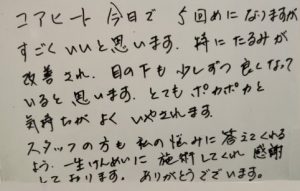 コアヒート 今日で 5回めになりますが
すごくいいと思います。特にたるみが
改善され、目の下も少しずつ良くなって
いると思います。とてもポカポカと
気持ちがよくいやされます。
スタッフの方も私の悩みに答えてくれる
よう、一生けんめいに施術してくれ感謝
しております。ありがとうございます。